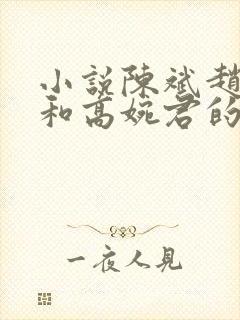 小說陳斌趙
和高婉君的
一夜人見